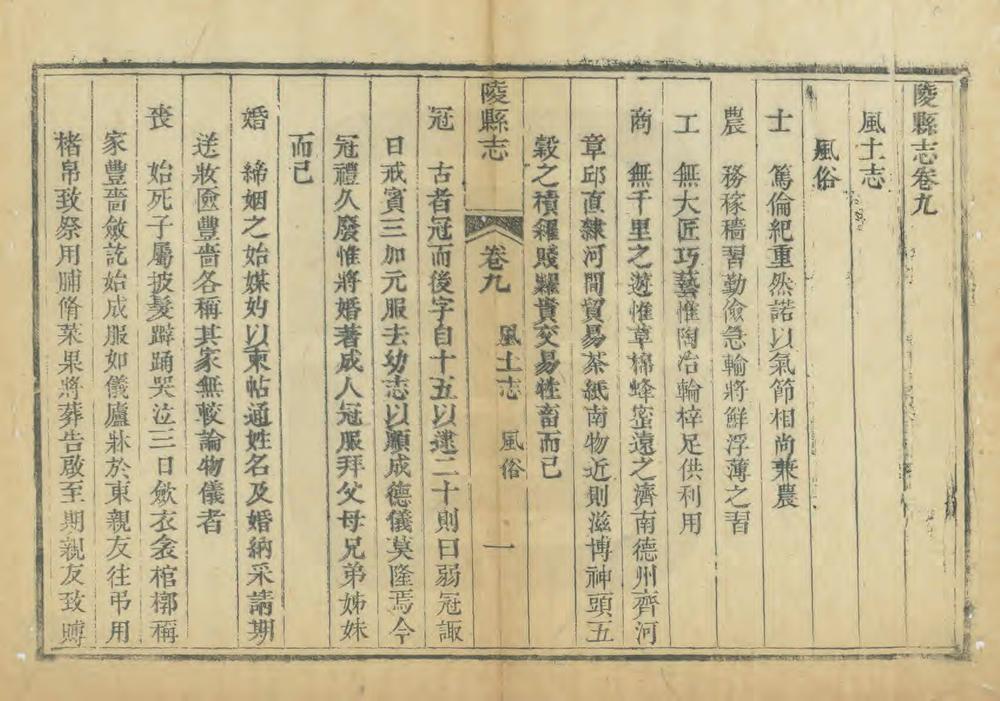 陵縣志卷九
風土志
風俗
士 篤倫紀重然諾以氣節相尚兼農
農 務稼穡習勤儉急輸將鮮浮薄之習
工 無大匠巧藝惟陶冶輪梓足供利用
商 無千里之遊惟草棉蜂蜜遠之濟南德州齊河
章邱直隸河間貿易茶紙南物近則滋博神頭五
穀之積糴賤糶貴交易牲畜而已
陵縣志 卷九 風土志 風俗 一
冠 古者冠而後字自十五以逮二十則曰弱冠諏
日戒賓三加元服去幼志以順成德儀莫隆焉今
冠禮久廢惟將婚著成人冠服拜父母兄弟姊妹
而已
婚 締姻之始媒妁以柬帖通姓名及婚納采請期
送妝匳豐嗇各稱其家無較論物儀者
喪 始死子屬披髮擗踊哭泣三日斂衣衾棺槨稱
家豐嗇斂訖始成服如儀廬牀於東親友往弔用
楮帛致祭用脯脩菜果將葬告啟至期親友致賻